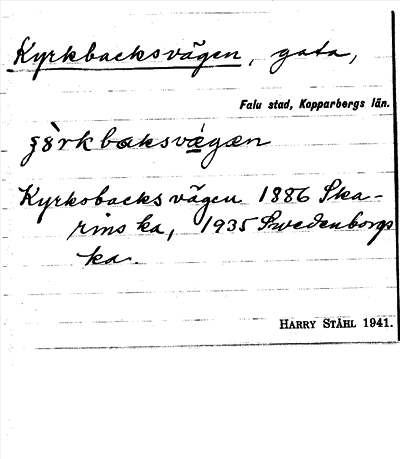 Kyrkbacksvägen, gata,
Falu stad, Kopparbergs län.
Kyrkobacksvägen 1886 Ska-
rins ka, 1935 Swedenborgs
ka.
HARRY STÅHL 1941.